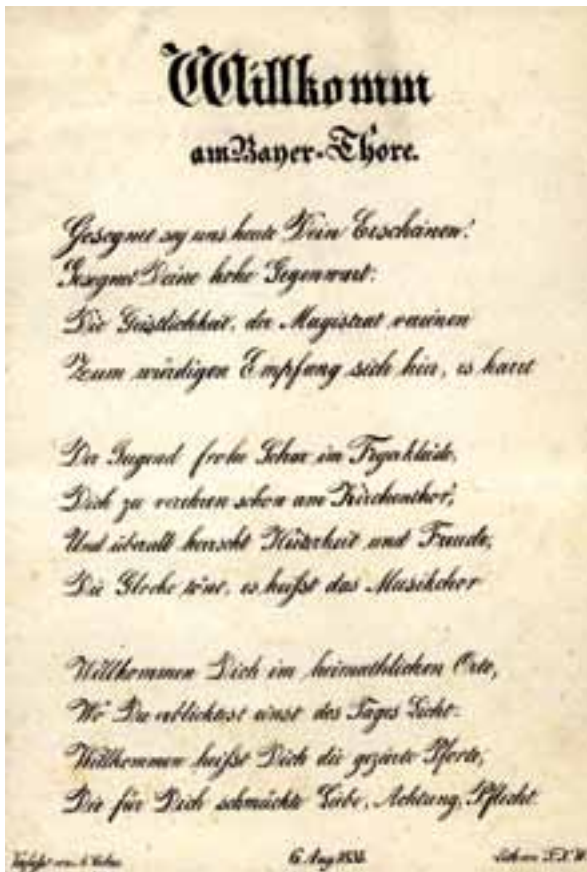 Willkomm
am Bayer-Thore.
Gesegnet sey uns heute Dein Erscheinen!
Gesegnet Deine hohe Gegenwart:
Die Geistlichkeit, der Magistrat vereinen
Zum würdigen Empfang sich hier, es harrt
Der Jugend frohe Schar im Feyerkleide,
Dich zu verehren schon am Kirchenthor,
Und überall herrscht Heiterkeit und Freude,
Die Glocke tönt, es heißt das Musikchor
Willkommen Dich im heimathlichen Orte,
Wo Du erblicktest einst des Tages Licht:
Willkommen heißt Dich die gezierte Pforte,
Die für Dich schmückte Liebe, Achtung, Pflicht.
Verfaßt von
6 Aug